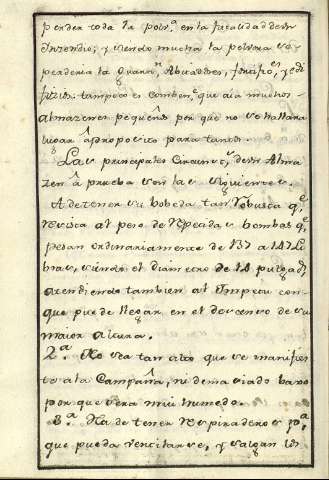 perder toda la polv.ª en la facilidad de su
Incendio; y siendo mucha la polvora se
perderia la Guarn.n, Abitadores, fortific.n, y edi
ficios: tampoco es comben.te que aia muchos
almazenes pequeños por que no se hallara
lugar âproposito para tantos.
Las principales Circunst.s de un Alma
zen â prueba son las siguientes.
A de tener su bobeda tan robusta q.e
resista al peso de repetidas bombas q.e
pesan ordinariamente de 137 a 147 Li
bras, siendo el diametro de 12 pulgad.s
atendiendo tambien al Impetu con
que puede llegar en el descenso de su
maior altura.
2.ª No sea tan alto que se manifies
to a la Campaña, ni demasiado baxo
por que sera mui humedo.
3.ª Ha de tener respiraderos p.ª
que pueda ventilarse, y salgan los